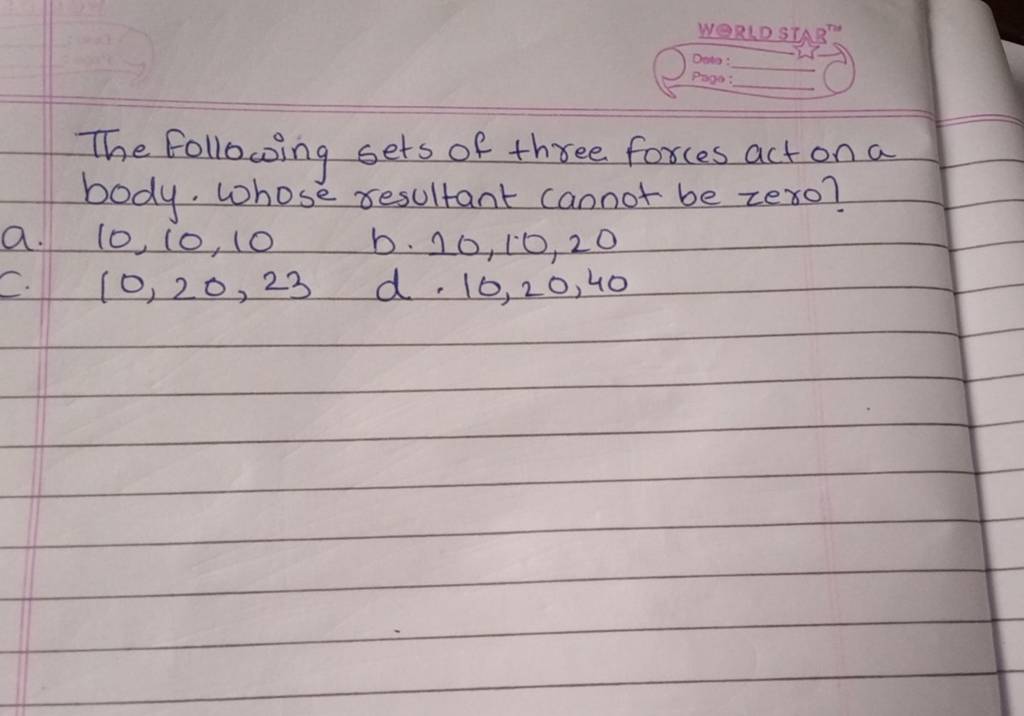 WORLD STAR™
Date :
Page :
The following sets of three forces act on a
body. Whose resultant cannot be zero?
a. 10, 10, 10 b. 10, 10, 20
c. 10, 20, 23 d. 10, 20, 40